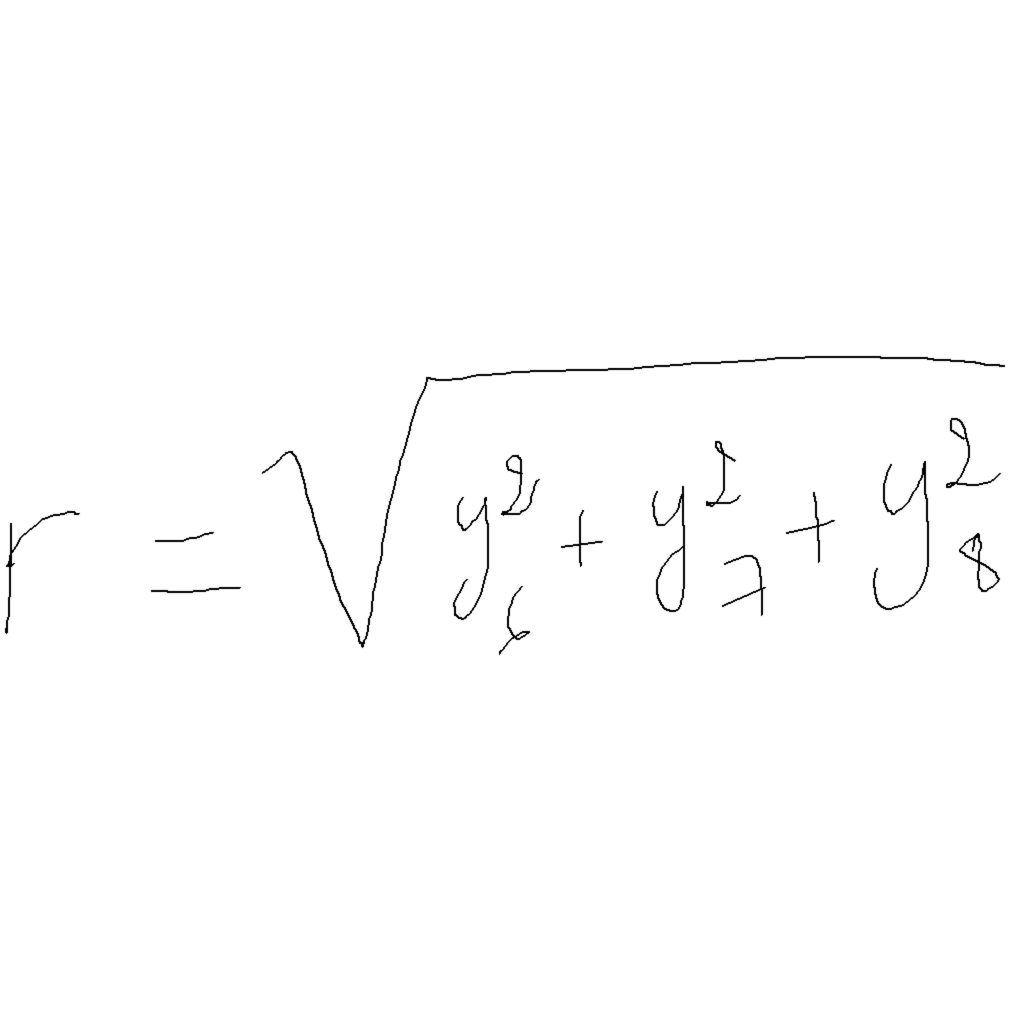 r = \sqrt{y_6^2 + y_7^2 + y_8^2}